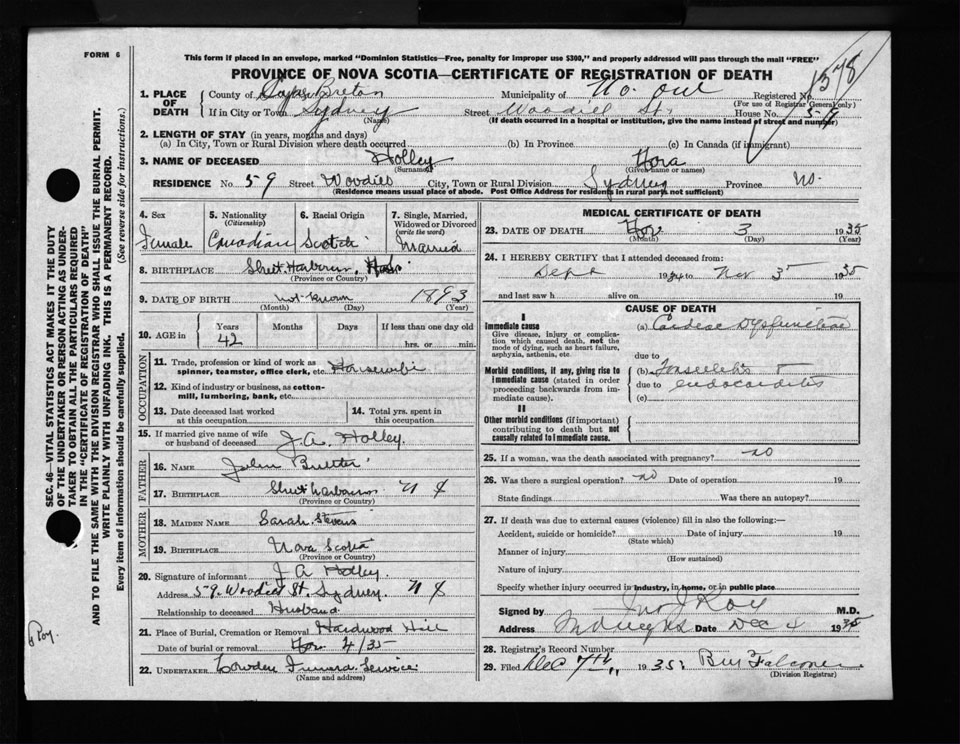 FORM 6
This form if placed in an envelope, marked "Dominion Statistics—Free, penalty for improper use $300," and properly addressed will pass through the mail "FREE"
PROVINCE OF NOVA SCOTIA—CERTIFICATE OF REGISTRATION OF DEATH
1378
1. PLACE OF DEATH
County of Cape Breton Municipality of Registered No.
(For use of Registrar General only)
If in City or Town Sydney Street Woodill St. House No. 59
(Name) (If death occurred in a hospital or institution, give the name instead of street and number)
2. LENGTH OF STAY (in years, months and days)
(a) In City, Town or Rural Division where death occurred (b) In Province (c) In Canada (if immigrant)
3. NAME OF DECEASED Holley
(Surname) (Given name or names)
RESIDENCE No. 59 Street Woodill City, Town or Rural Division Sydney Province
(Residence means usual place of abode. Post Office Address for residents in rural parts not sufficient)
4. Sex 5. Nationality (Citizenship) 6. Racial Origin 7. Single, Married, Widowed or Divorced (write the word)
Female Canadian Scotch Married
8. BIRTHPLACE Sheet Harbour,
(Province or Country)
9. DATE OF BIRTH not known 1893
(Month) (Day) (Year)
10. AGE in Years Months Days If less than one day old
42 hrs. or min.
OCCUPATION
11. Trade, profession or kind of work as spinner, teamster, office clerk, etc. Housewife
12. Kind of industry or business, as cotton-mill, lumbering, bank, etc.
13. Date deceased last worked at this occupation 14. Total yrs. spent in this occupation
15. If married give name of wife or husband of deceased J. A. Holley.
FATHER
16. NAME John
17. BIRTHPLACE Sheet Harbour N S
(Province or Country)
MOTHER
18. MAIDEN NAME Sarah Stevens
19. BIRTHPLACE Nova Scotia
(Province or Country)
20. Signature of informant J A Holley.
Address 59 Woodill St. Sydney N S
Relationship to deceased Husband
21. Place of Burial, Cremation or Removal Hardwood Hill
Date of burial or removal 4/35
22. UNDERTAKER Lowden Funeral Service
(Name and address)
MEDICAL CERTIFICATE OF DEATH
23. DATE OF DEATH 3 1935
(Month) (Day) (Year)
24. I HEREBY CERTIFY that I attended deceased from:
Sept 1934 to Nov 3 1935
and last saw h alive on 19
CAUSE OF DEATH
I
Immediate cause
Give disease, injury or complication which caused death, not the mode of dying, such as heart failure, asphyxia, asthenia, etc.
(a) Cardiac Dysfunction
due to
Morbid conditions, if any, giving rise to immediate cause (stated in order proceeding backwards from immediate cause).
(b) Tonsillitis +
due to endocarditis
(c)
II
Other morbid conditions (if important) contributing to death but not causally related to immediate cause.
25. If a woman, was the death associated with pregnancy? no
26. Was there a surgical operation? no Date of operation 19
State findings Was there an autopsy?
27. If death was due to external causes (violence) fill in also the following:—
Accident, suicide or homicide? Date of injury 19
(State which)
Manner of injury
(How sustained)
Nature of injury
Specify whether injury occurred in industry, in home, or in public place
Signed by Jno J Roy M.D.
Address Date Dec 4 1935
28. Registrar's Record Number
29. Filed Dec 7th, 1935 Falconer
(Division Registrar)
SEC. 46—VITAL STATISTICS ACT MAKES IT THE DUTY
OF THE UNDERTAKER OR PERSON ACTING AS UNDER-
TAKER TO OBTAIN ALL THE PARTICULARS REQUIRED
IN THE "CERTIFICATE OF REGISTRATION OF DEATH"
AND TO FILE THE SAME WITH THE DIVISION REGISTRAR WHO SHALL ISSUE THE BURIAL PERMIT.
WRITE PLAINLY WITH UNFADING INK. THIS IS A PERMANENT RECORD.
Every item of information should be carefully supplied. (See reverse side for instructions.)
Roy.